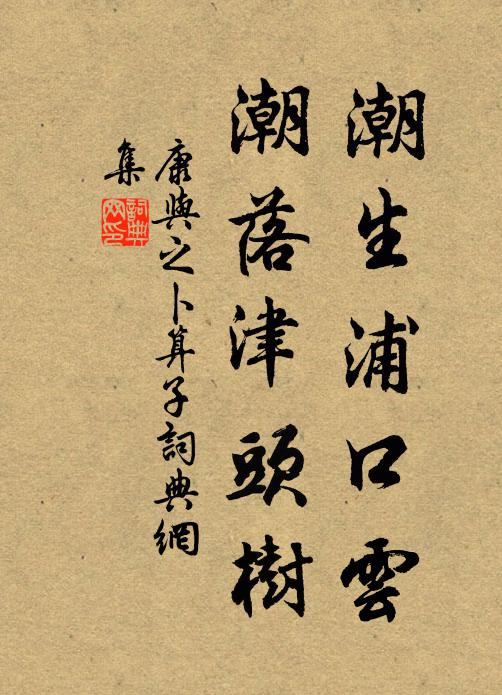 潮生浦口雲
潮落津頭樹
康與之卜算子詞典網
集
詞典網印